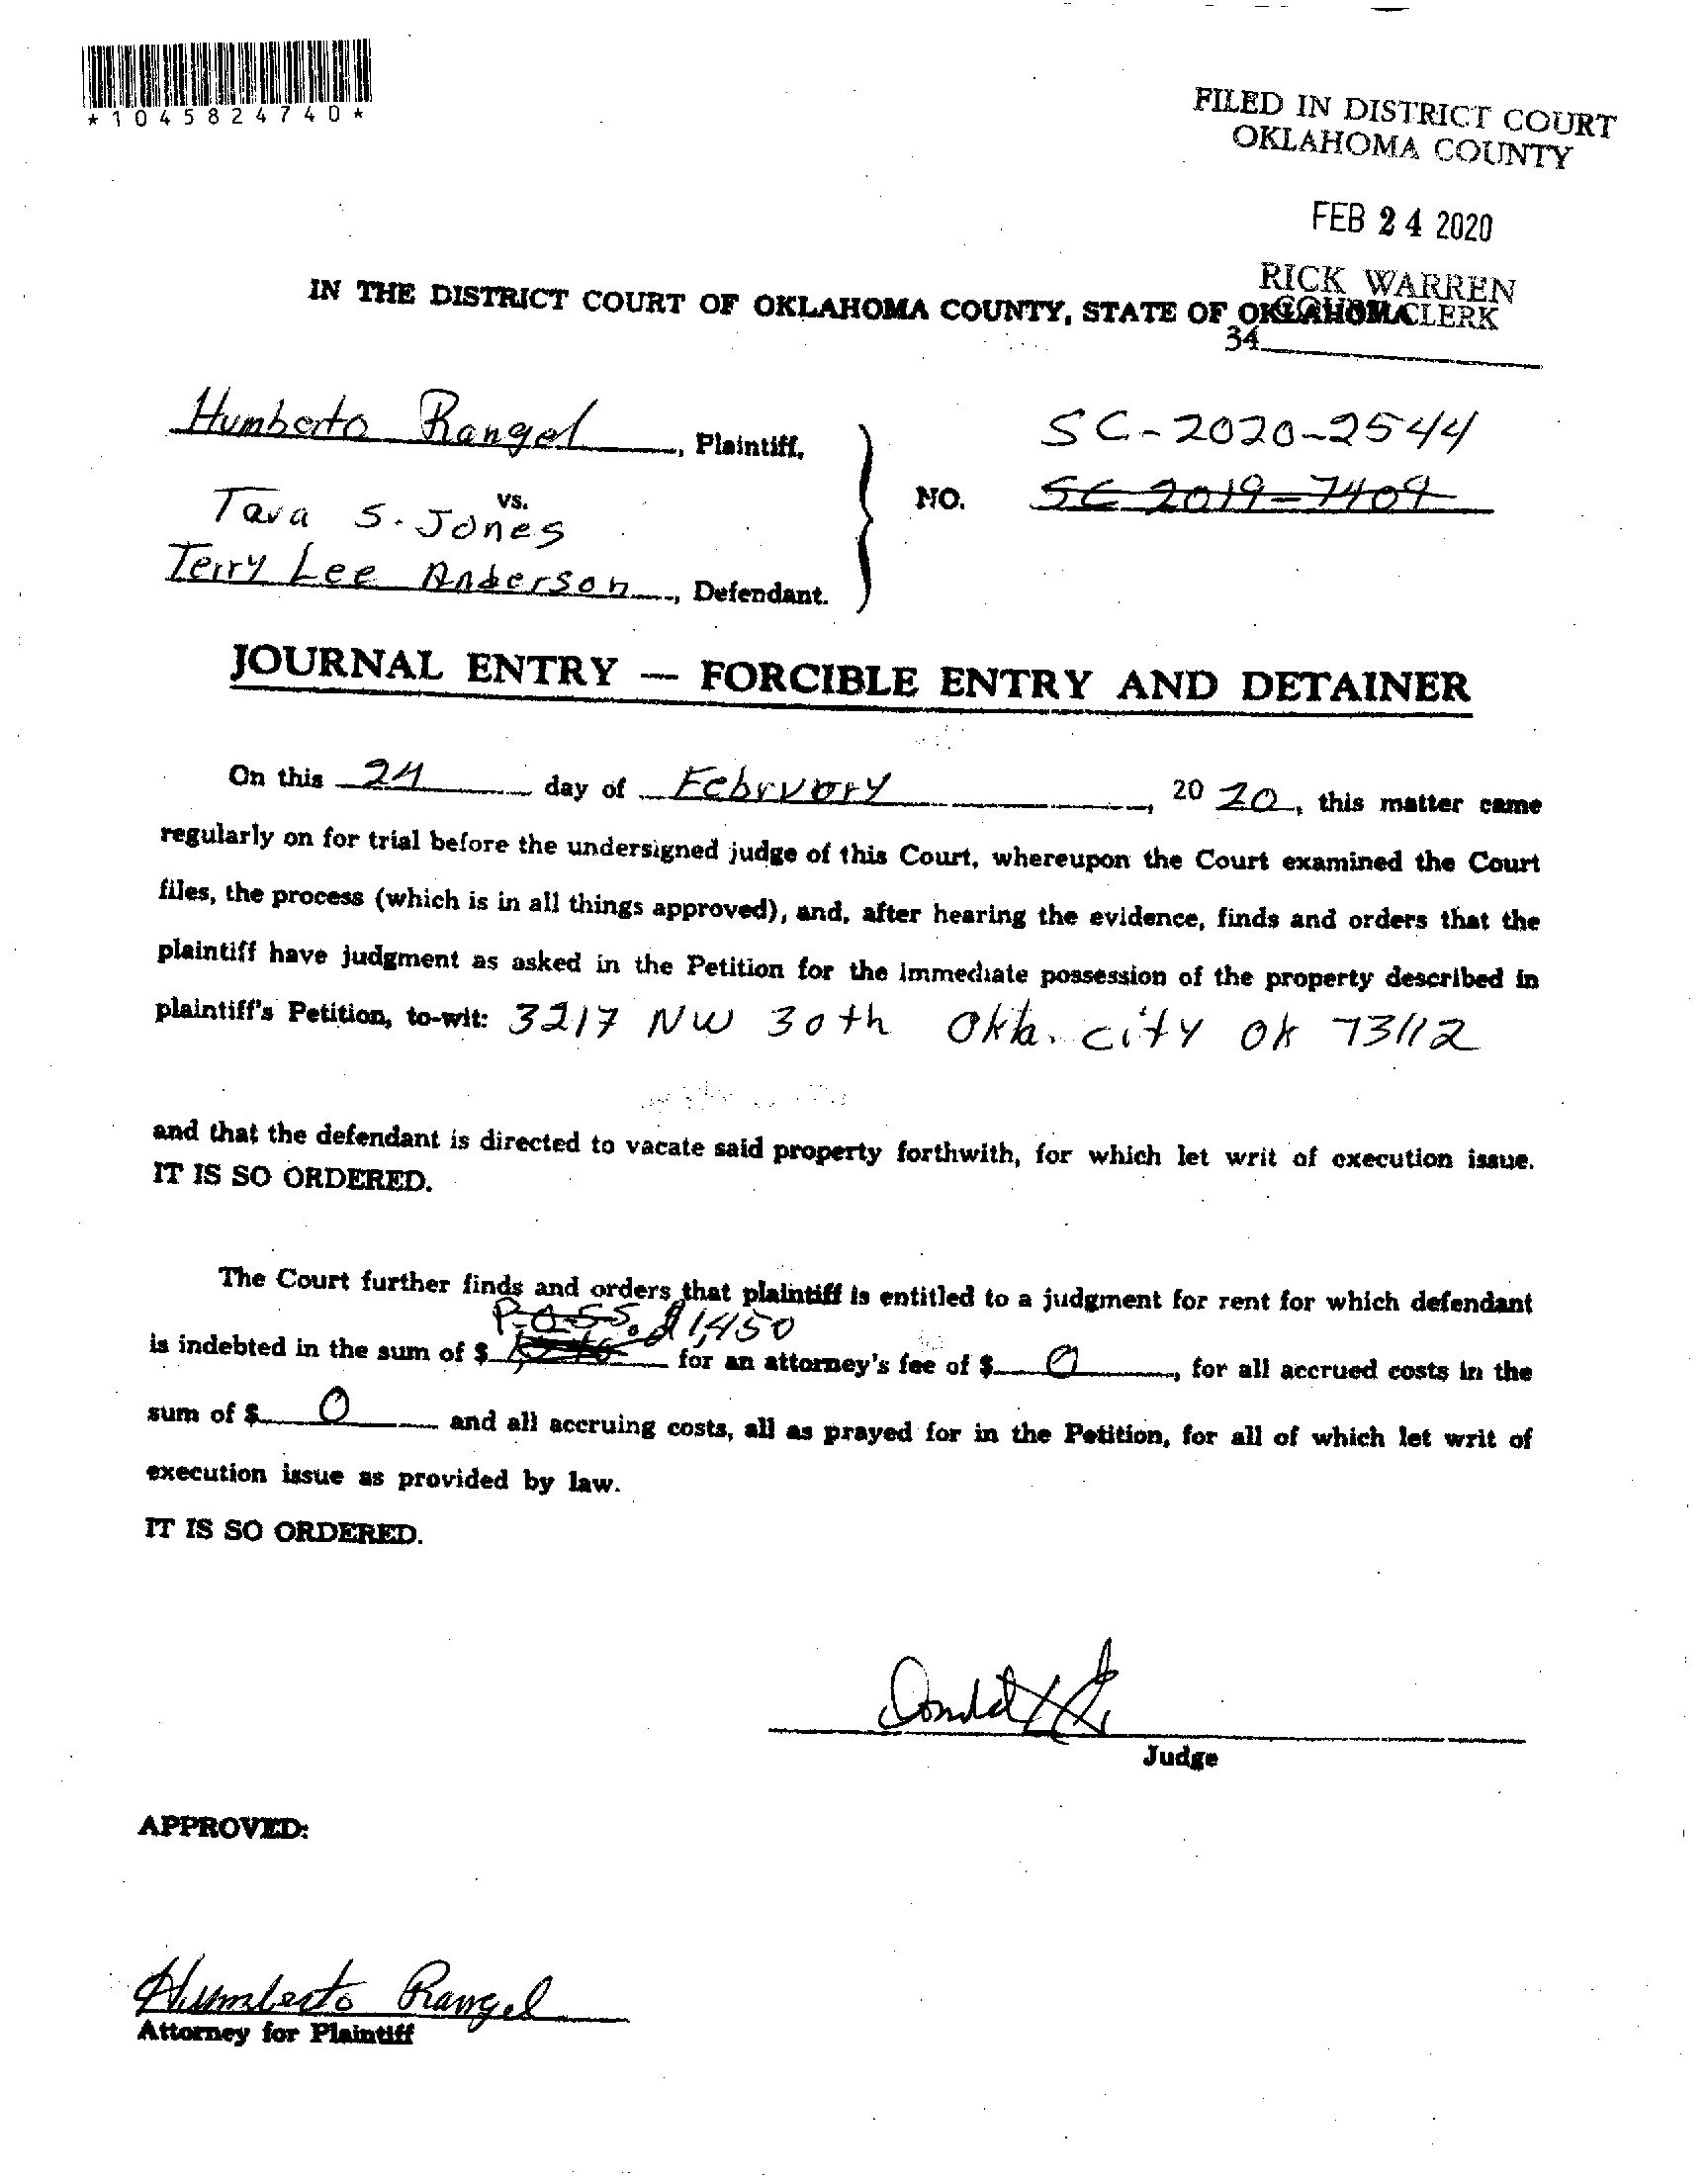 *1045824740*
FILED IN DISTRICT COURT
OKLAHOMA COUNTY
FEB 24 2020
RICK WARREN
COURT CLERK
34
IN THE DISTRICT COURT OF OKLAHOMA COUNTY, STATE OF OKLAHOMA
Humberto Rangel, Plaintiff,
vs.
Tava S. Jones
Terry Lee Anderson, Defendant.
SC-2020-2544
NO. SC 2019-7409
JOURNAL ENTRY — FORCIBLE ENTRY AND DETAINER
On this 24 day of February, 20 20, this matter came
regularly on for trial before the undersigned judge of this Court, whereupon the Court examined the Court
files, the process (which is in all things approved), and, after hearing the evidence, finds and orders that the
plaintiff have judgment as asked in the Petition for the immediate possession of the property described in
plaintiff's Petition, to-wit: 3217 NW 30th Okla. city OK 73112
and that the defendant is directed to vacate said property forthwith, for which let writ of execution issue.
IT IS SO ORDERED.
The Court further finds and orders that plaintiff is entitled to a judgment for rent for which defendant
1,450
is indebted in the sum of $ for an attorney's fee of $ 0, for all accrued costs in the
sum of $ 0 and all accruing costs, all as prayed for in the Petition, for all of which let writ of
execution issue as provided by law.
IT IS SO ORDERED.
Judge
APPROVED:
Humberto Rangel
Attorney for Plaintiff